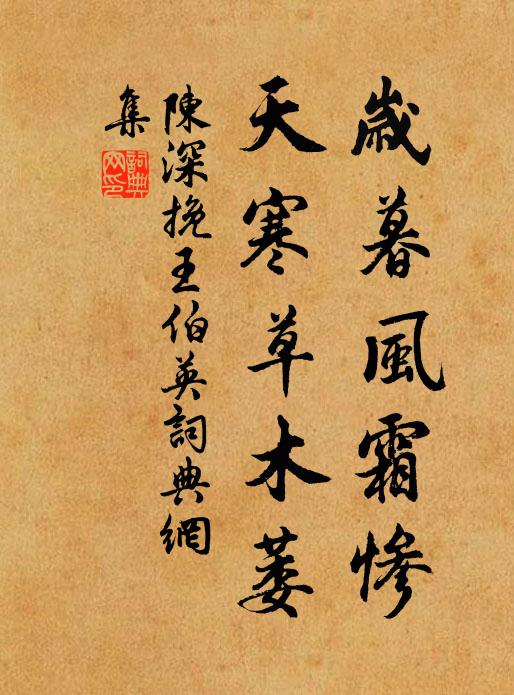 歲暮風霜慘
天寒草木萎
陳深挽王伯英詞典網
集
詞典
网印